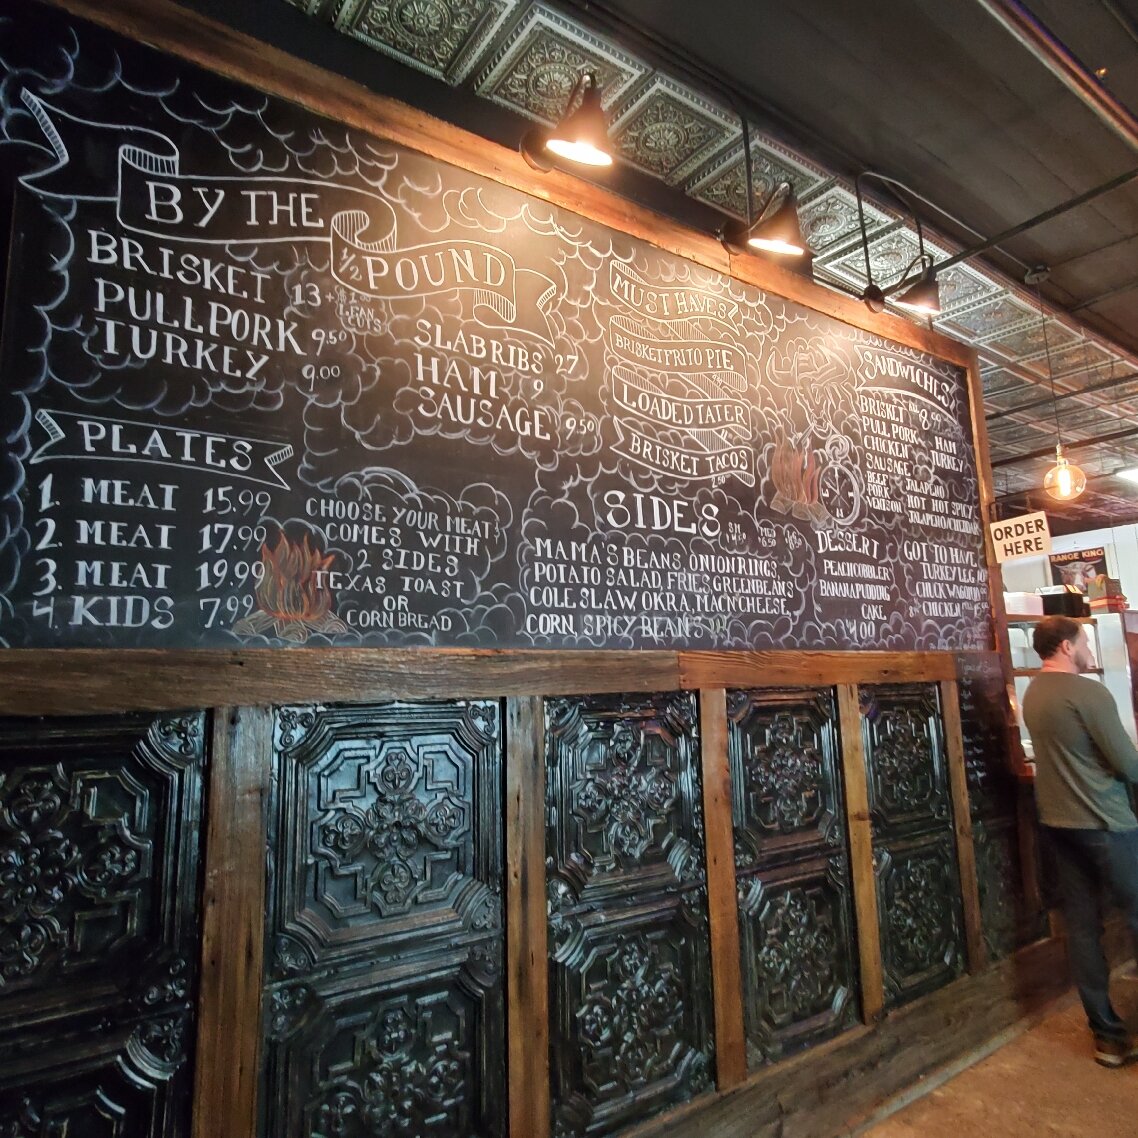 BY THE
1/2 POUND
BRISKET 13
PULLPORK 9.50
TURKEY 9.00
SLAB RIBS 27
HAM 9
SAUSAGE 9.50
PLATES
1. MEAT 15.99
2. MEAT 17.99
3. MEAT 19.99
4. KIDS 7.99
CHOOSE YOUR MEATS
COMES WITH
2 SIDES
TEXAS TOAST
OR
CORN BREAD
MUST HAVES
BRISKET FRITO PIE
LOADED TATER
BRISKET TACOS
SIDES
MAMA'S BEANS, ONION RINGS,
POTATO SALAD, FRIES, GREEN BEANS
COLE SLAW, OKRA, MAC N CHEESE,
CORN, SPICY BEANS
SANDWICHES
BRISKET
PULL PORK HAM
CHICKEN TURKEY
SAUSAGE
BEEF JALAPENO
PORK HOT HOT SPICY
VENISON JALAPENO/CHEDDAR
DESSERT
PEACH COBBLER
BANANA PUDDING
CAKE
GOT TO HAVE
TURKEY LEG
CHUCK WAGON
CHICKEN
ORDER
HERE
RANGE KING